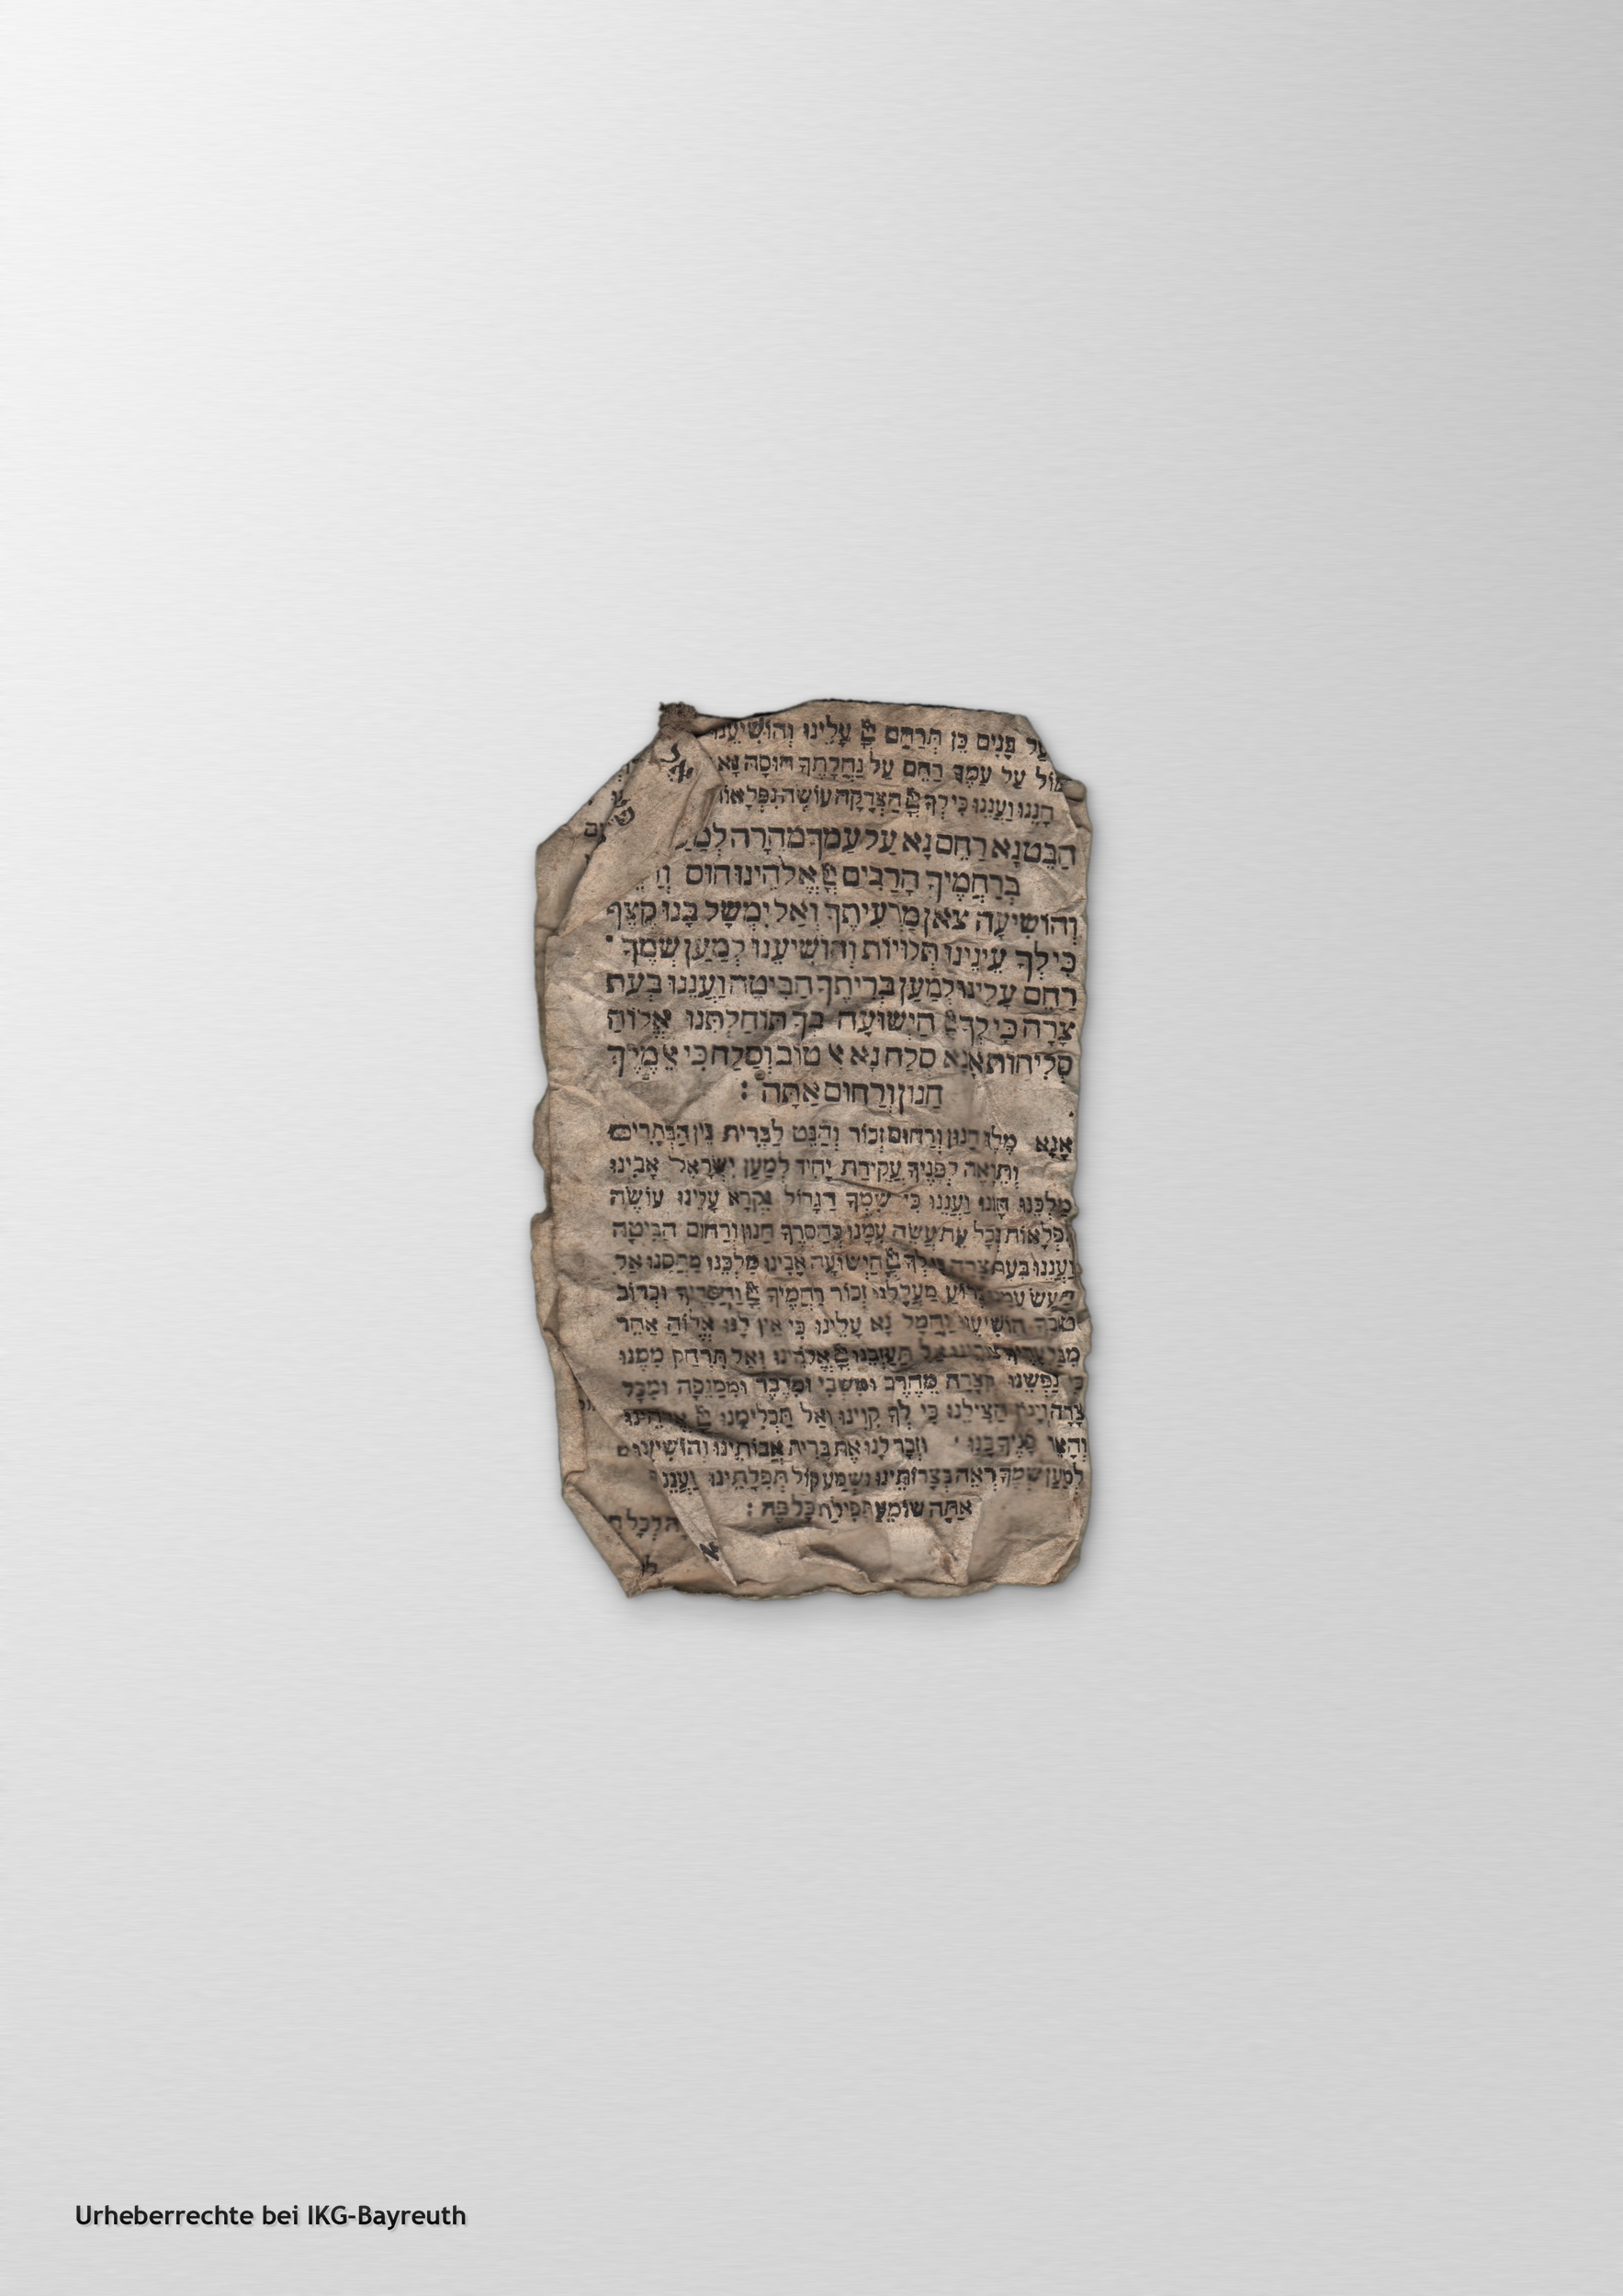 על פָּנִים כֵּן תְּרַחֵם יְיָ עָלֵינוּ וְהוֹשִׁיעֵנוּ
עַל עַמֶּךָ רַחֵם עַל נַחֲלָתֶךָ חוּסָה נָּא
חָנֵּנוּ וַעֲנֵנוּ כִּי לְךָ יְיָ הַצְּדָקָה עוֹשֶׂה נִפְלָאוֹת
הַבֶּט נָא רַחֶם נָא עַל עַמְּךָ מְהֵרָה לְמַעַן
בְּרַחֲמֶיךָ הָרַבִּים יְיָ אֱלֹהֵינוּ חוּס
וְהוֹשִׁיעָה צֹאן מַרְעִיתֶךָ וְאַל יִמְשָׁל בָּנוּ קֶצֶף
כִּי לְךָ עֵינֵינוּ תְּלוּיוֹת וְהוֹשִׁיעֵנוּ לְמַעַן שְׁמֶךָ
רַחֵם עָלֵינוּ לְמַעַן בְּרִיתֶךָ הַבִּיטָה וַעֲנֵנוּ בְּעֵת
צָרָה כִּי לְךָ יְיָ הַיְשׁוּעָה בְּךָ תוֹחַלְתֵּנוּ אֱלוֹהַּ
סְלִיחוֹת אָנָּא סְלַח נָא אֵ טוֹב וְסַלָּח כִּי אֵ מֶלֶךְ
חַנּוּן וְרַחוּם אַתָּה :
אָנָּא מֶלֶךְ חַנּוּן וְרַחוּם זְכוֹר וְהַבֵּט לִבְרִית בֵּין הַבְּתָרִים
וְתֵרָאֶה לְפָנֶיךָ עֲקֵידַת יָחִיד לְמַעַן יִשְׂרָאֵל אָבִינוּ
מַלְכֵּנוּ חָנֵּנוּ וַעֲנֵנוּ כִּי שִׁמְךָ הַגָּדוֹל נִקְרָא עָלֵינוּ עוֹשֵׂה
נִפְלָאוֹת בְּכָל עֵת עֲשֵׂה עִמָּנוּ כְּחַסְדֶּךָ חַנּוּן וְרַחוּם הַבִּיטָה
וַעֲנֵנוּ בְּעֵת צָרָה כִּי לְךָ יְיָ הַיְשׁוּעָה אָבִינוּ מַלְכֵּנוּ מַחֲסֵנוּ אַל
תַּעַשׂ עִמָּנוּ כְּרוֹעַ מַעֲלָלֵנוּ זְכוֹר רַחֲמֶיךָ יְיָ וַחֲסָדֶיךָ וּכְרוֹב
טוּבְךָ הוֹשִׁיעֵנוּ וַחֲמָל נָא עָלֵינוּ כִּי אֵין לָנוּ אֱלוֹהַּ אַחֵר
מִבַּלְעָדֶיךָ צוּרֵנוּ אַל תַּעַזְבֵנוּ יְיָ אֱלֹהֵינוּ וְאַל תִּרְחַק מִמֶּנּוּ
כִּי נַפְשֵׁנוּ קְצָרָה מֵחֶרֶב וּמִשְּׁבִי וּמִדֶּבֶר וּמִמַּגֵּפָה וּמִכָּל
צָרָה וְיָגוֹן הַצִּילֵנוּ כִּי לְךָ קִוִּינוּ וְאַל תַּכְלִימֵנוּ יְיָ אֱלֹהֵינוּ
וְהָאֵר פָּנֶיךָ בָּנוּ וּזְכָר לָנוּ אֶת בְּרִית אֲבוֹתֵינוּ וְהוֹשִׁיעֵנוּ
לְמַעַן שְׁמֶךָ רְאֵה בְּצָרוֹתֵינוּ וּשְׁמַע קוֹל תְּפִלָּתֵינוּ
אַתָּה שׁוֹמֵעַ תְּפִילַת כָּל פֶּה :
Urheberrechte bei IKG-Bayreuth